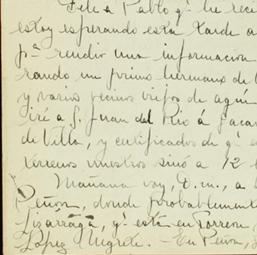 Dile a Pablo qe he reci
estoy esperando esta tarde a
pa rendir una informacion
rando un primo hermano de
y varios vecinos viejos de aqui
iré a S. Juan del Rio á sacar
de Villa, y certificados de qe
terrenos nuestros sinó a 12
Mañana voy, D. m., a
Peñon, donde probablemente
Lizárraga, qe está en Torreon,
López Negrete. - En Peñon,